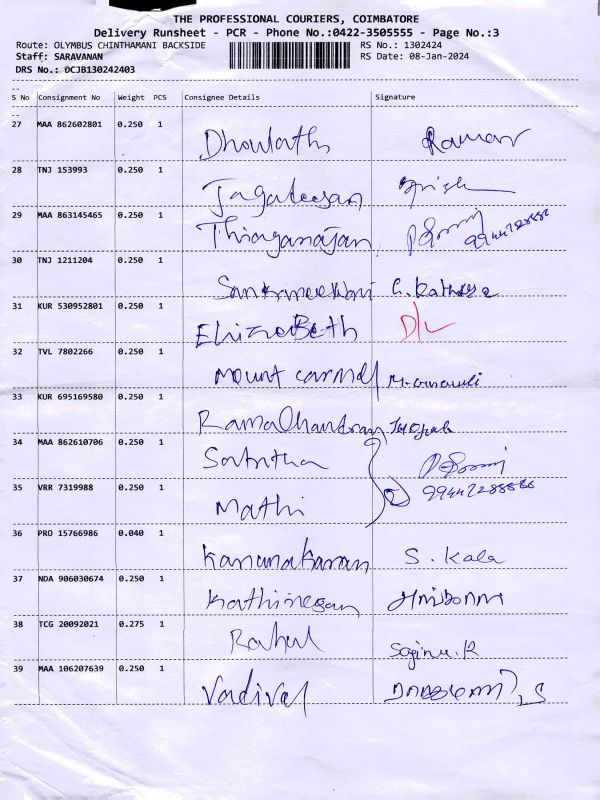 THE PROFESSIONAL COURIERS, COIMBATORE
Delivery Runsheet - PCR - Phone No.:0422-3505555 - Page No.:3
Route: OLYMBUS CHINTHAMANI BACKSIDE RS No.: 1302424
Staff: SARAVANAN RS Date: 08-Jan-2024
DRS No.: DCJB130242403
--
S No Consignment No Weight PCS Consignee Details Signature
--
27 MAA 862602801 0.250 1 Dhoulath Raman
28 TNJ 153993 0.250 1 Jagateesan
29 MAA 863145465 0.250 1 Thiyaganajan
30 TNJ 1211204 0.250 1
31 KUR 530952801 0.250 1 ElizaBeth D/L
32 TVL 7802266 0.250 1 mount carmel
33 KUR 695169580 0.250 1 Ramachandran
34 MAA 862610706 0.250 1
35 VRR 7319988 0.250 1 Mathi
36 PRO 15766986 0.040 1 S. Kala
37 NDA 906030674 0.250 1
38 TCG 20092021 0.275 1 Rahul
39 MAA 106207639 0.250 1 Vadivel